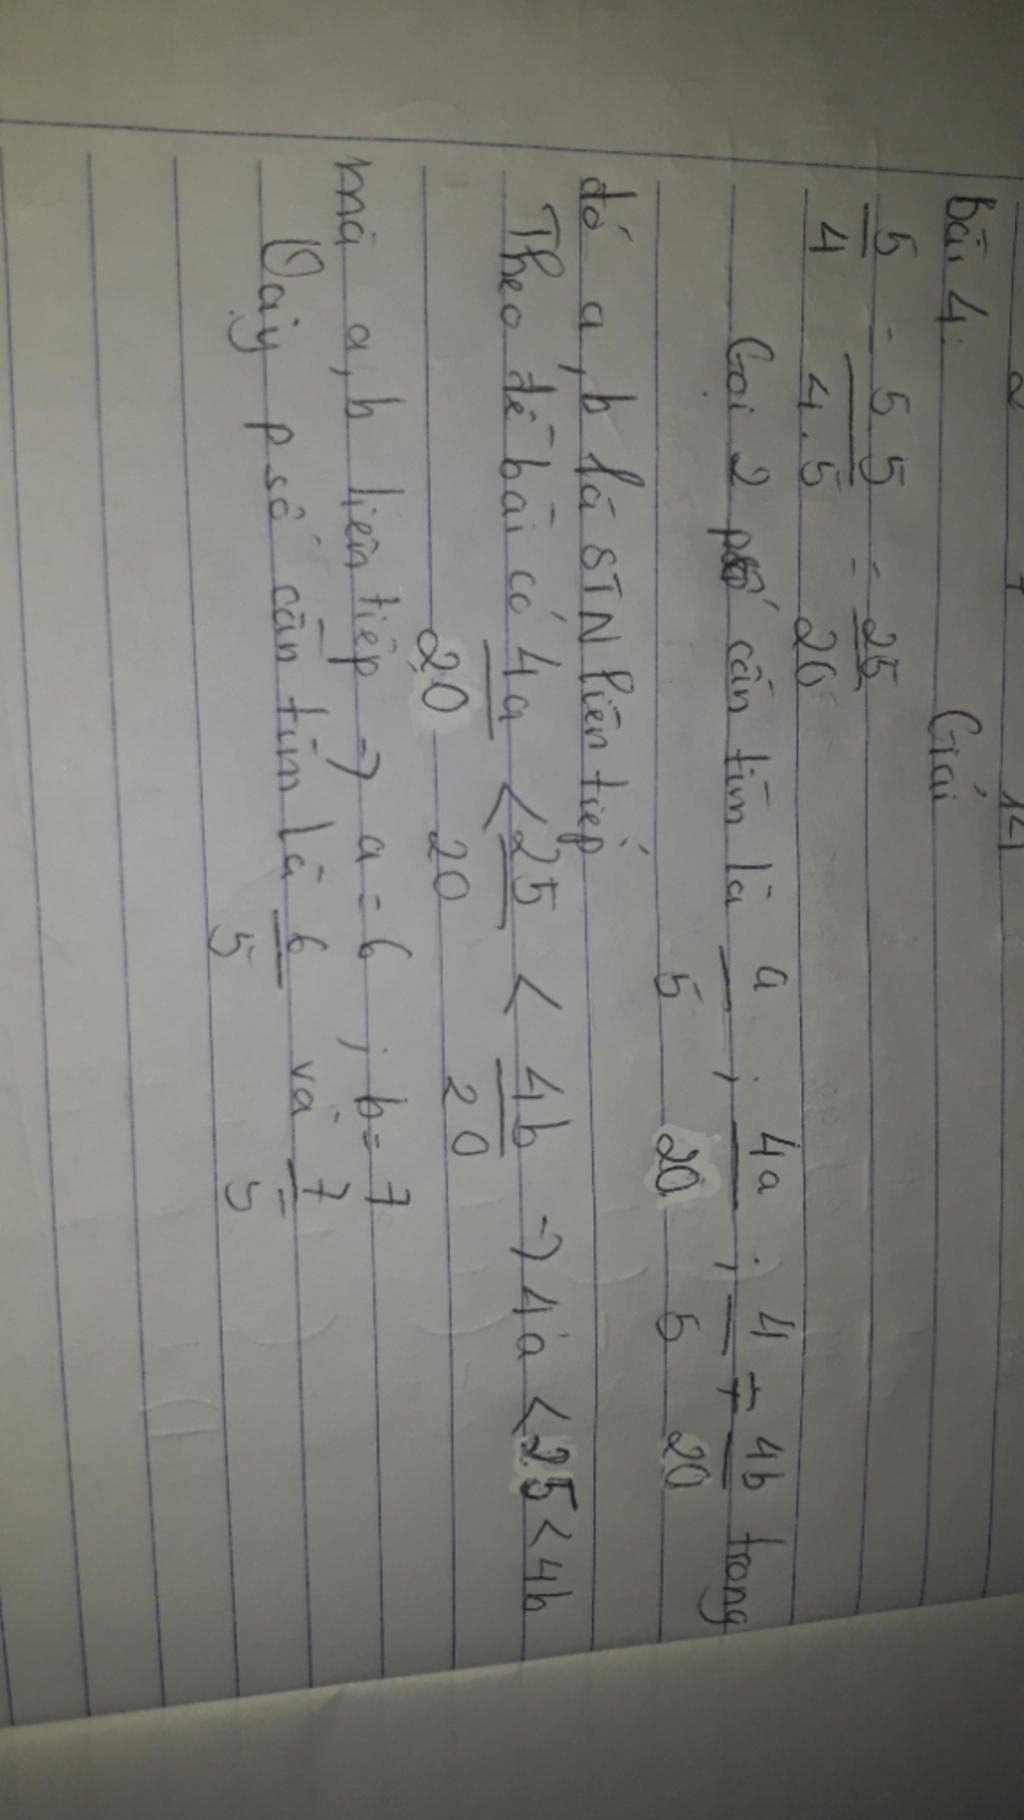 2 7 14
Bài 4: Giải
5/4 = 5.5/4.5 = 25/20
Gọi 2 psố cần tìm là a/5 ; 4a/20 ; 4/5 = 4b/20 trong
đó a, b là STN liên tiếp
Theo đề bài có 4a/20 < 25/20 < 4b/20 → 4a < 25 < 4b
mà a, b liên tiếp → a = 6 ; b = 7
Vậy psố cần tìm là 6/5 và 7/5